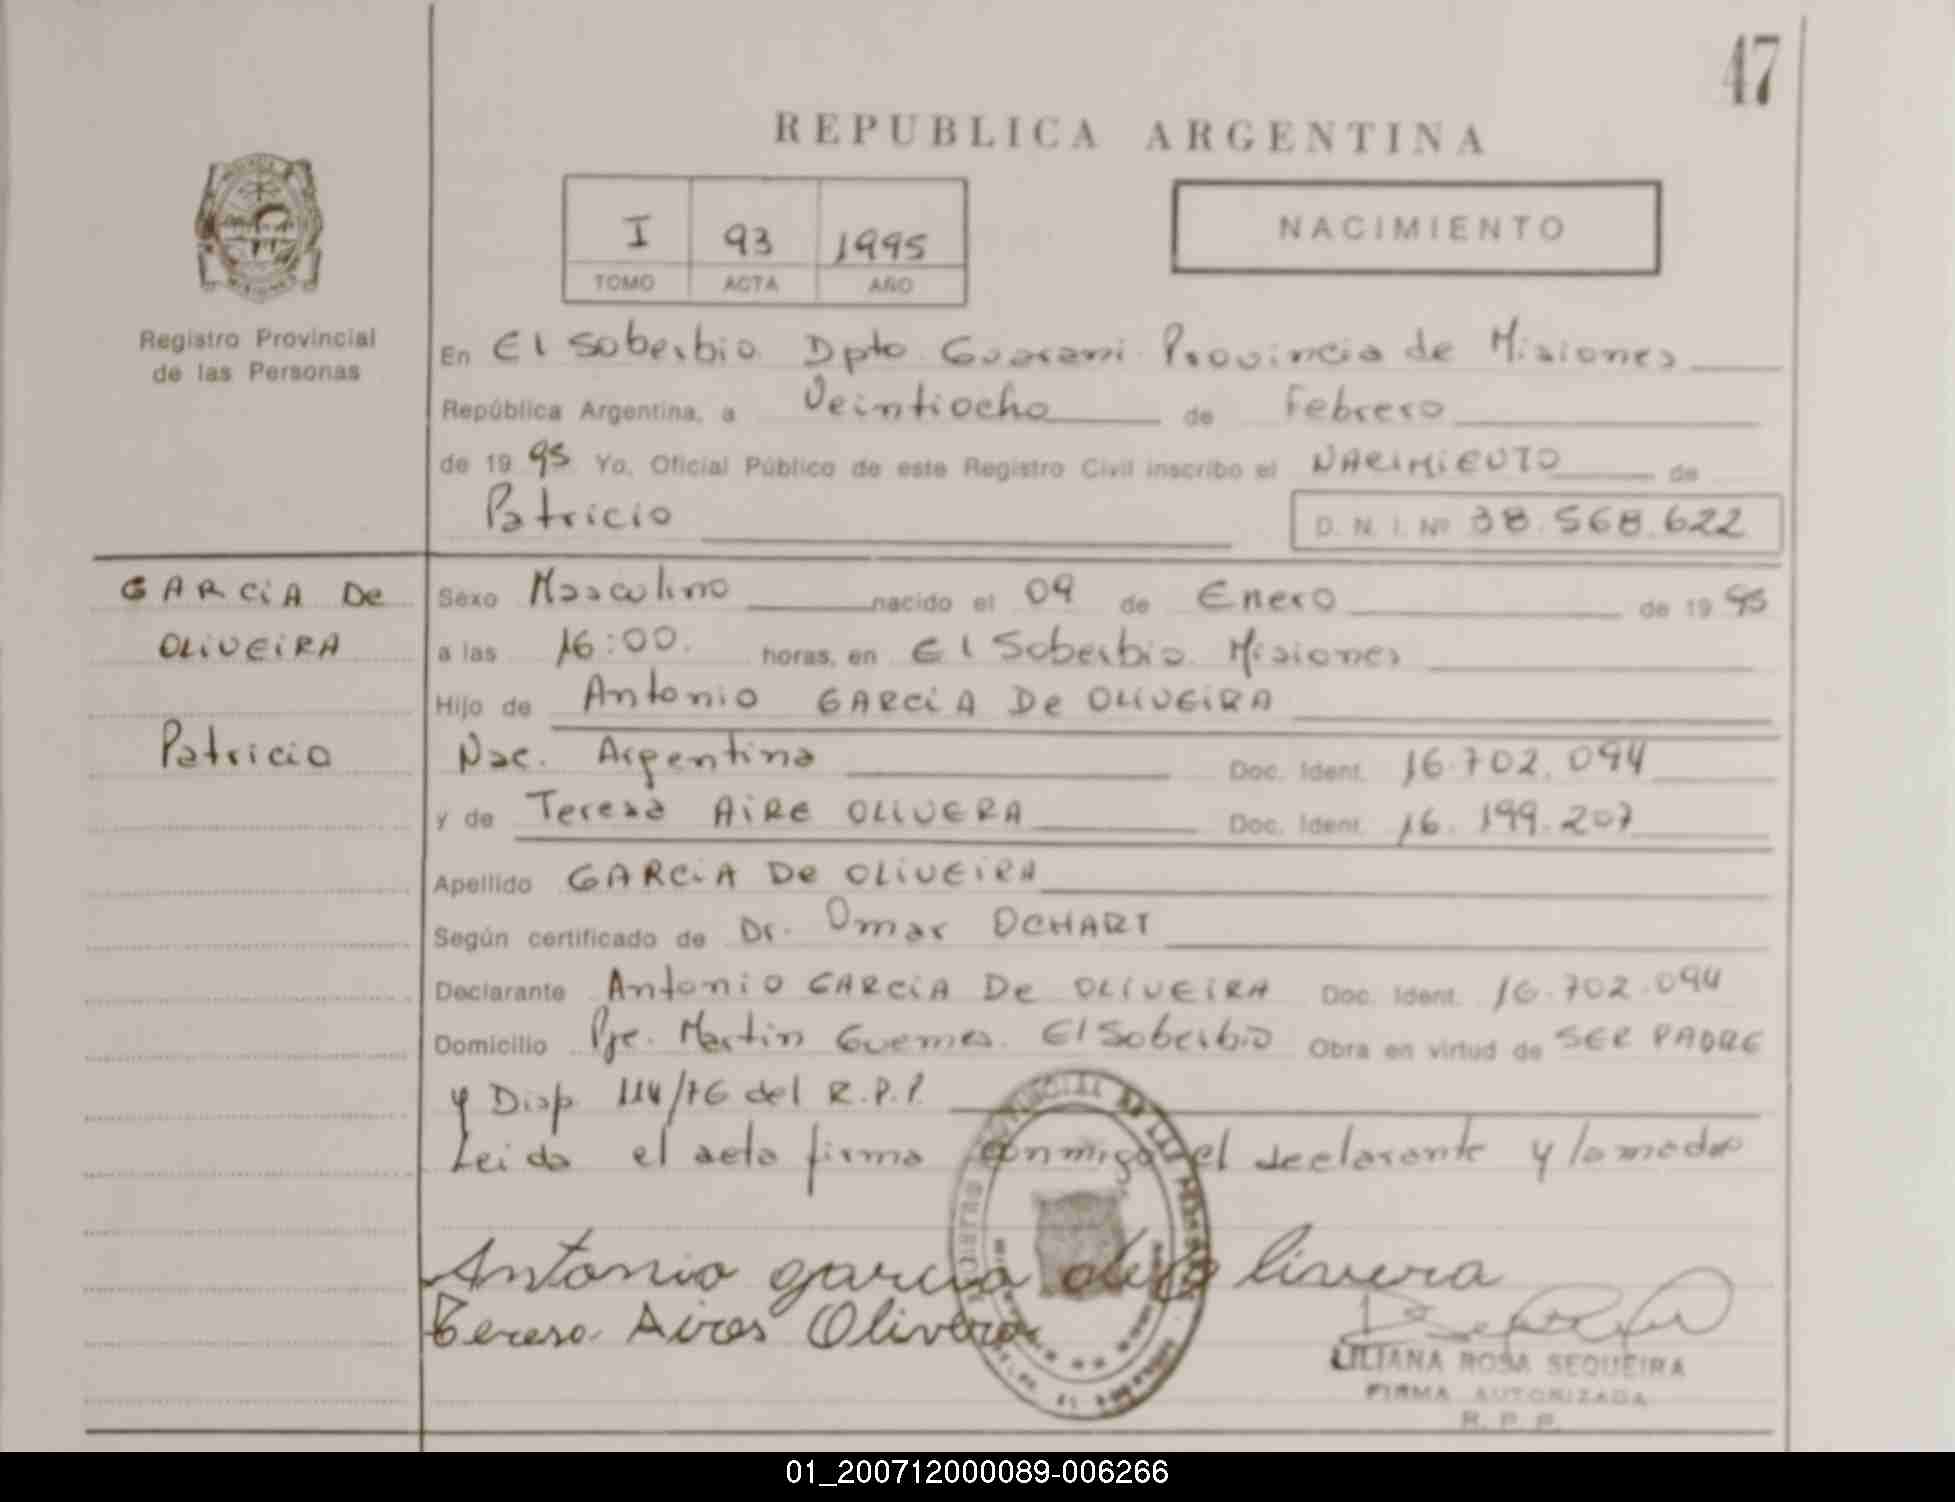 47
REPUBLICA ARGENTINA
I 93 1995
TOMO ACTA AÑO
NACIMIENTO
Registro Provincial
de las Personas
En El Soberbio Dpto. Guarani Provincia de Misiones
República Argentina, a Veintiocho de Febrero
de 19 95 Yo, Oficial Público de este Registro Civil inscribo el NACIMIENTO de
Patricio D. N. I. Nº 38.568.622
GARCIA De
OLIVEIRA
Patricio
Sexo Masculino nacido el 09 de Enero de 19 95
a las 16:00. horas, en El Soberbio. Misiones
Hijo de Antonio GARCIA De OLIVEIRA
Nac. Argentina Doc. Ident. 16.702.094
y de Teresa AIRE OLIVERA Doc. Ident. 16.199.207
Apellido GARCIA De OLIVEIRA
Según certificado de Dr. Omar OCHART
Declarante Antonio GARCIA De OLIVEIRA Doc. Ident. 16.702.094
Domicilio Pje. Martin Guemes. El Soberbio Obra en virtud de SER PADRE
y Disp. 114/76 del R.P.P.
Leida el acta firma conmigo el declarante y la madre
Antonio garcia de livera
Teresa Aires Olivera
LILIANA ROSA SEQUEIRA
FIRMA AUTORIZADA
R. P. P.
01_200712000089-006266